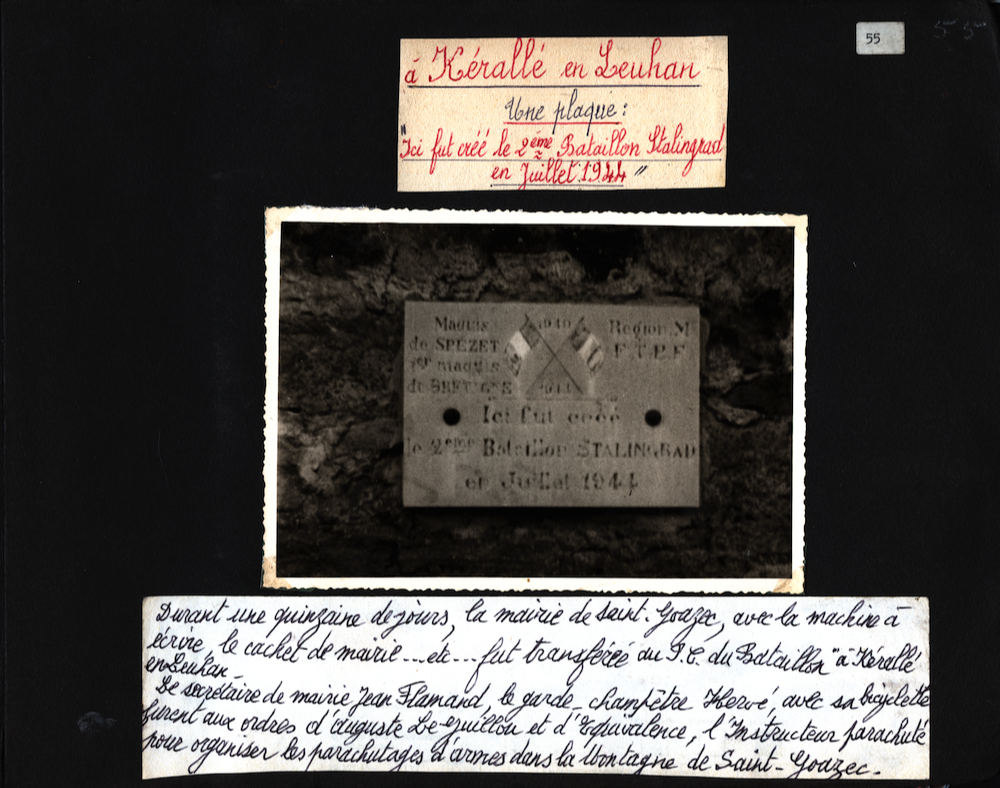 55
à Kérallé en Leuhan
Une plaque :
"Ici fut créé le 2ème Bataillon Stalingrad
en Juillet 1944 "
Maquis
de SPÉZET
1er maquis
de BRETAGNE
1940
1944
Région M
F.T.P.F
Ici fut créé
le 2ème Bataillon STALINGRAD
en Juillet 1944
Durant une quinzaine de jours, la mairie de Saint-Goazec, avec la machine à
écrire, le cachet de mairie...etc... fut transférée au P.C. du Bataillon "à Kérallé
en Leuhan-
Le secrétaire de mairie Jean Flamand, le garde-champêtre Hervé, avec sa bicyclette
furent aux ordres d'Auguste Le-Guillou et d'Equivalence, l'Instructeur parachuté
pour organiser les parachutages d'armes dans la Montagne de Saint-Goazec-